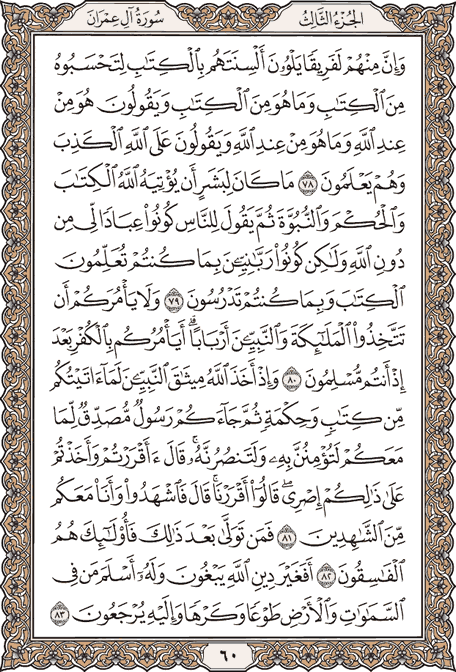 الجزء الثالث
سورة آل عمران
وَإِنَّ مِنْهُمْ لَفَرِيقًا يَلْوُۥنَ أَلْسِنَتَهُم بِٱلْكِتَٰبِ لِتَحْسَبُوهُ
مِنَ ٱلْكِتَٰبِ وَمَا هُوَ مِنَ ٱلْكِتَٰبِ وَيَقُولُونَ هُوَ مِنْ
عِندِ ٱللَّهِ وَمَا هُوَ مِنْ عِندِ ٱللَّهِ وَيَقُولُونَ عَلَى ٱللَّهِ ٱلْكَذِبَ
وَهُمْ يَعْلَمُونَ ٧٨ مَا كَانَ لِبَشَرٍ أَن يُؤْتِيَهُ ٱللَّهُ ٱلْكِتَٰبَ
وَٱلْحُكْمَ وَٱلنُّبُوَّةَ ثُمَّ يَقُولَ لِلنَّاسِ كُونُوا۟ عِبَادًا لِّى مِن
دُونِ ٱللَّهِ وَلَٰكِن كُونُوا۟ رَبَّٰنِيِّۦنَ بِمَا كُنتُمْ تُعَلِّمُونَ
ٱلْكِتَٰبَ وَبِمَا كُنتُمْ تَدْرُسُونَ ٧٩ وَلَا يَأْمُرَكُمْ أَن
تَتَّخِذُوا۟ ٱلْمَلَٰٓئِكَةَ وَٱلنَّبِيِّۦنَ أَرْبَابًا ۗ أَيَأْمُرُكُم بِٱلْكُفْرِ بَعْدَ
إِذْ أَنتُم مُّسْلِمُونَ ٨٠ وَإِذْ أَخَذَ ٱللَّهُ مِيثَٰقَ ٱلنَّبِيِّۦنَ لَمَآ ءَاتَيْتُكُم
مِّن كِتَٰبٍ وَحِكْمَةٍ ثُمَّ جَآءَكُمْ رَسُولٌ مُّصَدِّقٌ لِّمَا
مَعَكُمْ لَتُؤْمِنُنَّ بِهِۦ وَلَتَنصُرُنَّهُۥ ۚ قَالَ ءَأَقْرَرْتُمْ وَأَخَذْتُمْ
عَلَىٰ ذَٰلِكُمْ إِصْرِى ۖ قَالُوٓا۟ أَقْرَرْنَا ۚ قَالَ فَٱشْهَدُوا۟ وَأَنَا۠ مَعَكُم
مِّنَ ٱلشَّٰهِدِينَ ٨١ فَمَن تَوَلَّىٰ بَعْدَ ذَٰلِكَ فَأُو۟لَٰٓئِكَ هُمُ
ٱلْفَٰسِقُونَ ٨٢ أَفَغَيْرَ دِينِ ٱللَّهِ يَبْغُونَ وَلَهُۥٓ أَسْلَمَ مَن فِى
ٱلسَّمَٰوَٰتِ وَٱلْأَرْضِ طَوْعًا وَكَرْهًا وَإِلَيْهِ يُرْجَعُونَ ٨٣
٦٠